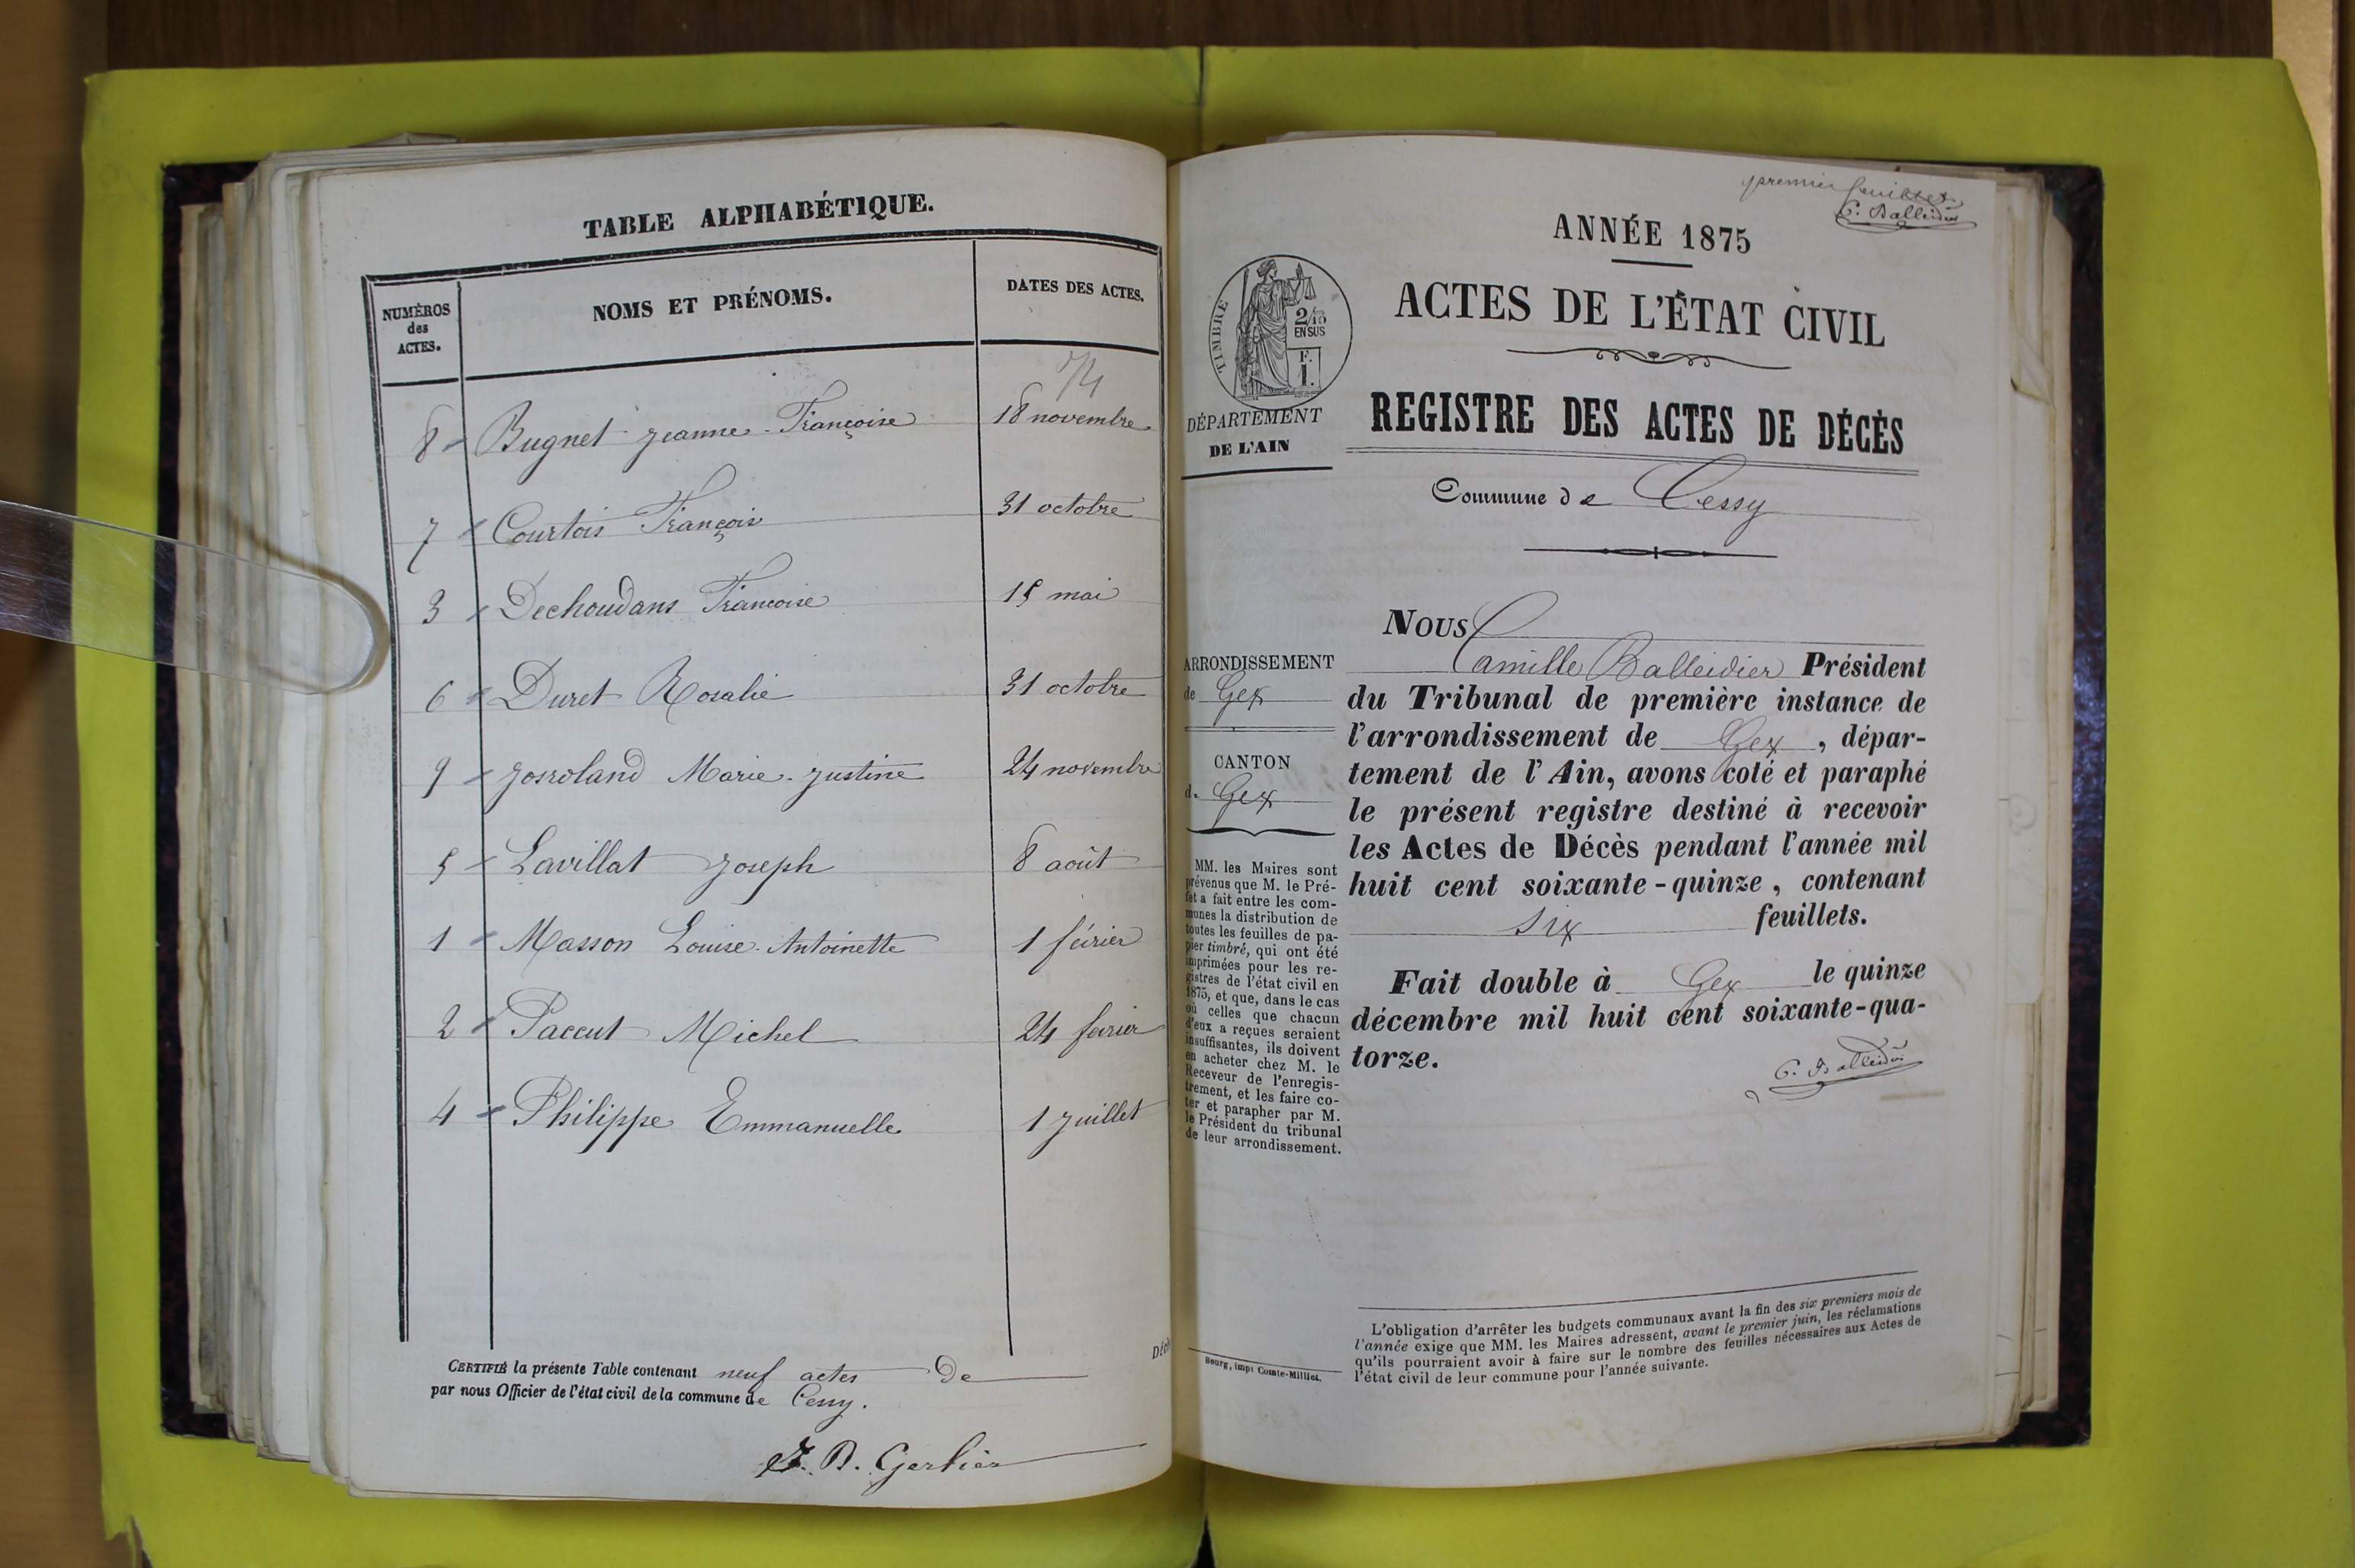 TABLE ALPHABÉTIQUE.
NUMÉROS
des
ACTES.
NOMS ET PRÉNOMS.
DATES DES ACTES.
74
8 Bugnet Jeanne-Françoise 18 novembre
7 Courtois François 31 octobre
3 Dechoudans Francoise 15 mai
6 Duret Rosalie 31 octobre
9 Josroland Marie-Justine 24 novembre
5 Lavillat Joseph 8 août
1 Masson Louise-Antoinette 1 février
2 Paccut Michel 24 fevrier
4 Philippe Emmanuelle 1 Juillet
CERTIFIÉ la présente Table contenant neuf actes De
par nous Officier de l'état civil de la commune de Cessy.
J. B. Gerlier
premier feuillet
C. Balleidier
ANNÉE 1875
ACTES DE L'ÉTAT CIVIL
REGISTRE DES ACTES DE DÉCÈS
Commune de Cessy
TIMBRE
2/10
EN SUS
F.
1.
DÉPARTEMENT
DE L'AIN
ARRONDISSEMENT
de Gex
CANTON
de Gex
MM. les Maires sont
prévenus que M. le Pré-
fet a fait entre les com-
munes la distribution de
toutes les feuilles de pa-
pier timbré, qui ont été
imprimées pour les re-
gistres de l'état civil en
1875, et que, dans le cas
où celles que chacun
d'eux a reçues seraient
insuffisantes, ils doivent
en acheter chez M. le
Receveur de l'enregis-
trement, et les faire co-
ter et parapher par M.
le Président du tribunal
de leur arrondissement.
Nous
Camille Balleidier Président
du Tribunal de première instance de
l'arrondissement de Gex, dépar-
tement de l'Ain, avons coté et paraphé
le présent registre destiné à recevoir
les Actes de Décès pendant l'année mil
huit cent soixante-quinze, contenant
six feuillets.
Fait double à Gex le quinze
décembre mil huit cent soixante-qua-
torze.
C. Balleidier
L'obligation d'arrêter les budgets communaux avant la fin des six premiers mois de
l'année exige que MM. les Maires adressent, avant le premier juin, les réclamations
qu'ils pourraient avoir à faire sur le nombre des feuilles nécessaires aux Actes de
l'état civil de leur commune pour l'année suivante.
Bourg, impr Comte-Milliet.